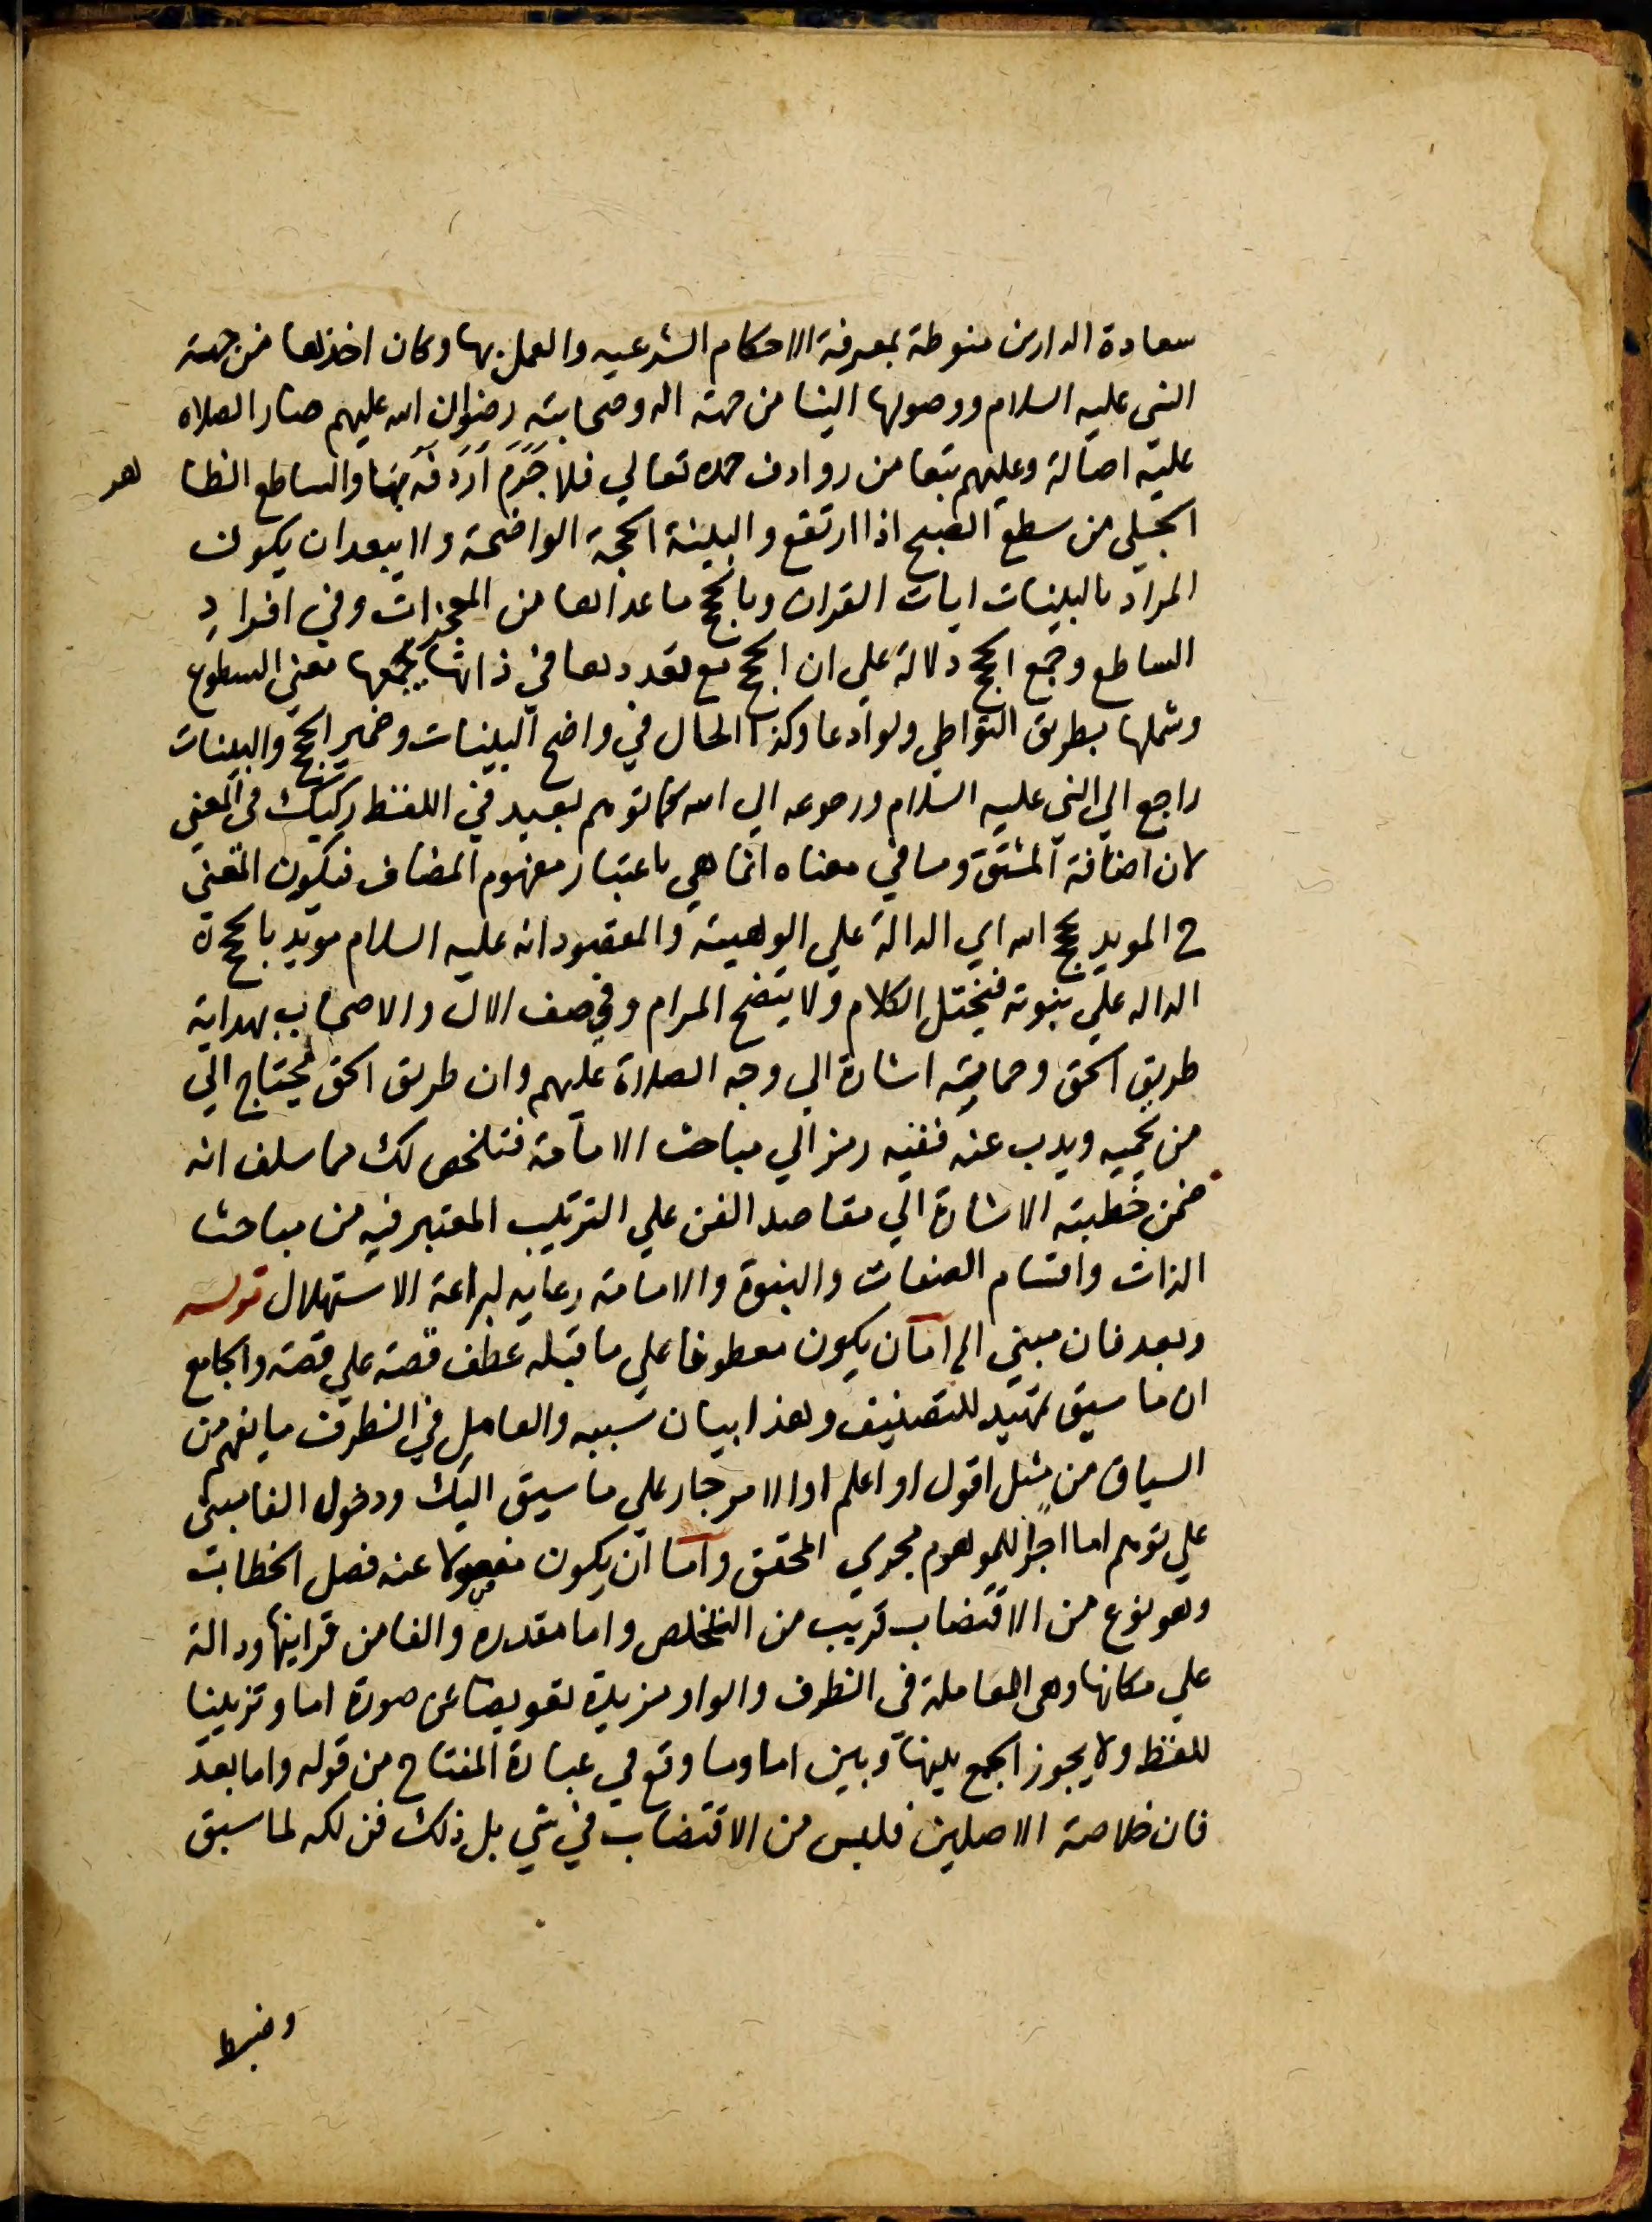 سعادة الدارين منوطة بمعرفة الاحكام الشرعيه والعمل بها وكان اخذها من جهته
النبى عليه السلام ووصولها الينا من جهة اله وصحابته رضوان الله عليهم صار الصلاه
عليه اصالة وعليهم تبعا من روادف حمده تعالي فلا جَرَمَ اَرْدَفَه بها والساطع الظا هر
الجلى من سطع الصبح اذا ارتفع والبينة الحجة الواضحة ولا يبعد ان يكون
المراد بالبينات ايات القران وبالحجج ما عداها من المعجزات وفي افرادِ
الساطع وجمع الحجج دلالة علي ان الحجج مع تعددها في ذاتها يجمعها معنى السطوع
وشملها بطريق التواطي ولو ادعا وكذا الحال في واضح البينات وضمير الحجج والبينات
راجع الي النبي عليه السلام ورجوعه الي الله كما توهم بعيد في اللفظ ركيك في المعني
لان اضافة المشتق وما في معناه انما هي باعتبار مفهوم المضاف فيكون المعنى
ح المويد بحجج الله اي الدالة علي الوهيته والمقصود انه عليه السلام مويد بالحجج
الداله علي نبوته فيختل الكلام ولا يتضح المرام وفي وصف الال والاصحاب بهداية
طريق الحق وحمايته اشارة الي وجه الصلاة عليهم وان طريق الحق يحتاج الي
من يحميه ويدب عنه ففيه رمز الي مباحث الامامة فتلخص لك مما سلف انه
ضمن خطبته الاشارة الي مقاصد الفن علي الترتيب المعتبر فيه من مباحث
الذات واقسام الصفات والنبوة والامامة رعايه لبراعة الاستهلال قوله
وبعد فان مبني الي اما ان يكون معطوفا علي ما قبله عطف قصة علي قصة والجامع
ان ما سبق تمهيد للتصنيف وهذا بيان سببه والعامل في الظرف ما يفهم من
السياق من مثل اقول او اعلم اذ الامر جار علي ما سيق اليك ودخول الفا مبنى
علي توهم اما اجرا للموهوم مجري المحقق واما ان يكون مفصولا عنه فصل الخطاب
وهو نوع من الاقتضاب قريب من التخلص واما مقدره والفا من قراينها ودالة
علي مكانها وهى العاملة فى الظرف والواو مزيدة تعويضا عن صورة اما وتزيينا
للفظ ولا يجوز الجمع بينها وبين اما وما وقع في عبارة المفتاح من قوله واما بعد
فان خلاصة الاصلين فليس من الاقتضاب في شي بل ذلك فذ لكه لما سبق
وضبط